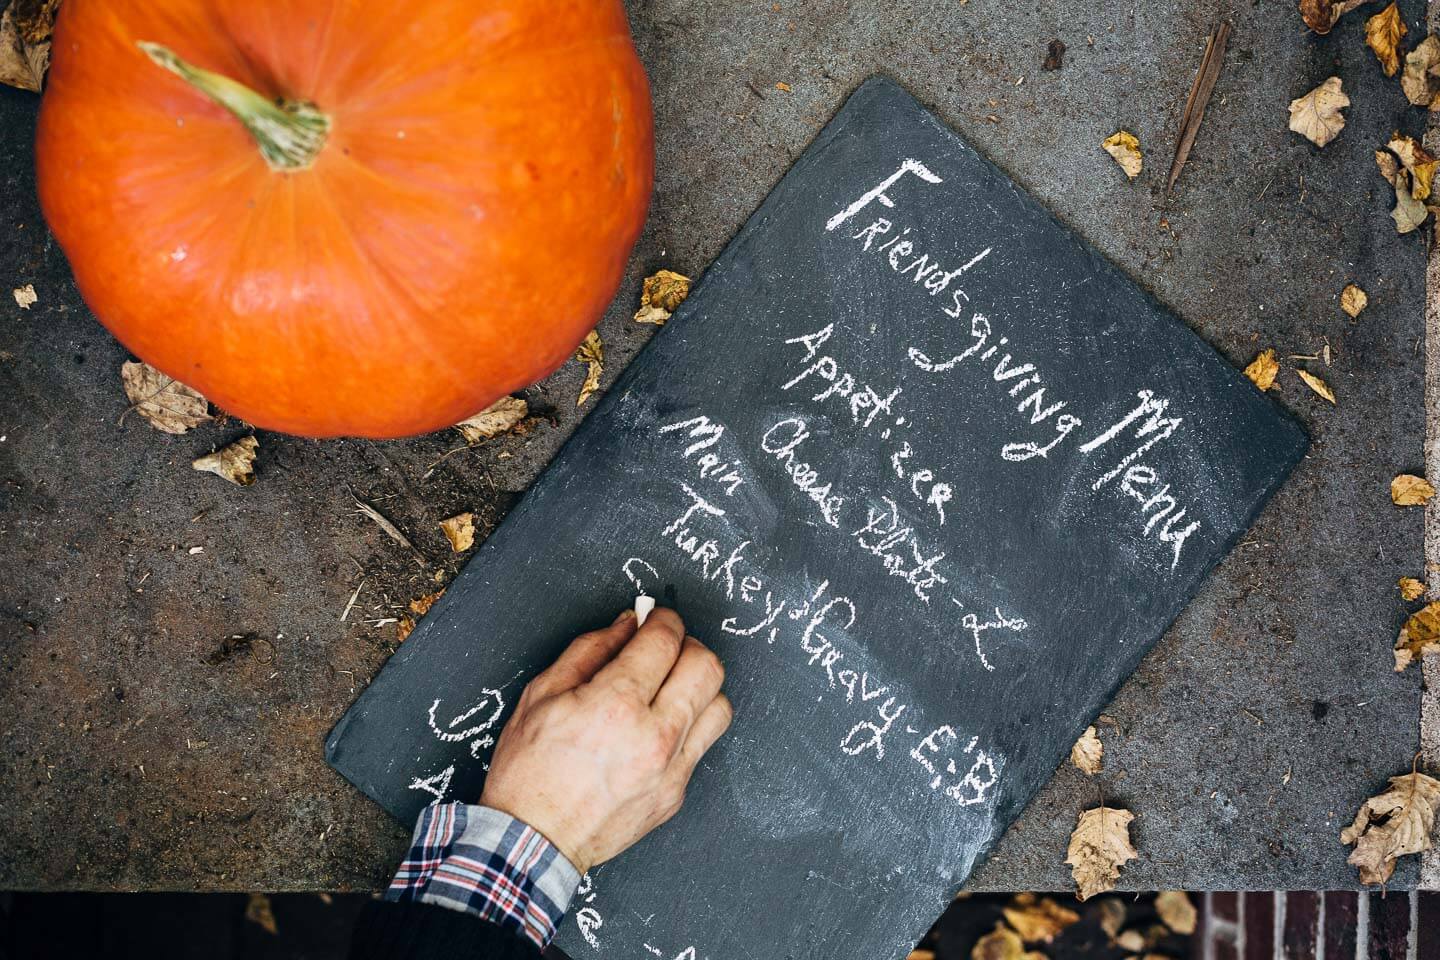 Friendsgiving Menu
Appetizer
Cheese Plate - L
Main
Turkey & Gravy - E & B
C
De
A